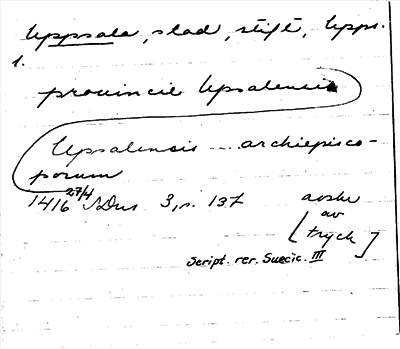 Uppsala, stad, stift, Upps.
l.
provincie Upsalensis
Upsalensis .. archiepisco-
porum
1416 27/4 SDns 3, s. 137 avskr
av
[tryck]
Script. rer. Suecic. III